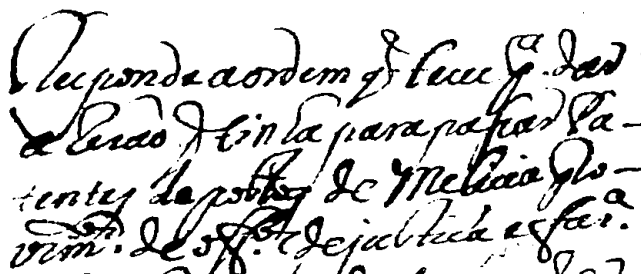 Responde a ordem q̃ teue p.ª dar
a Rezão q̃ tinha para passar Pa-
tentes de postos de Melicia Pro-
uim.tos de off.os de justiça e faz.ª